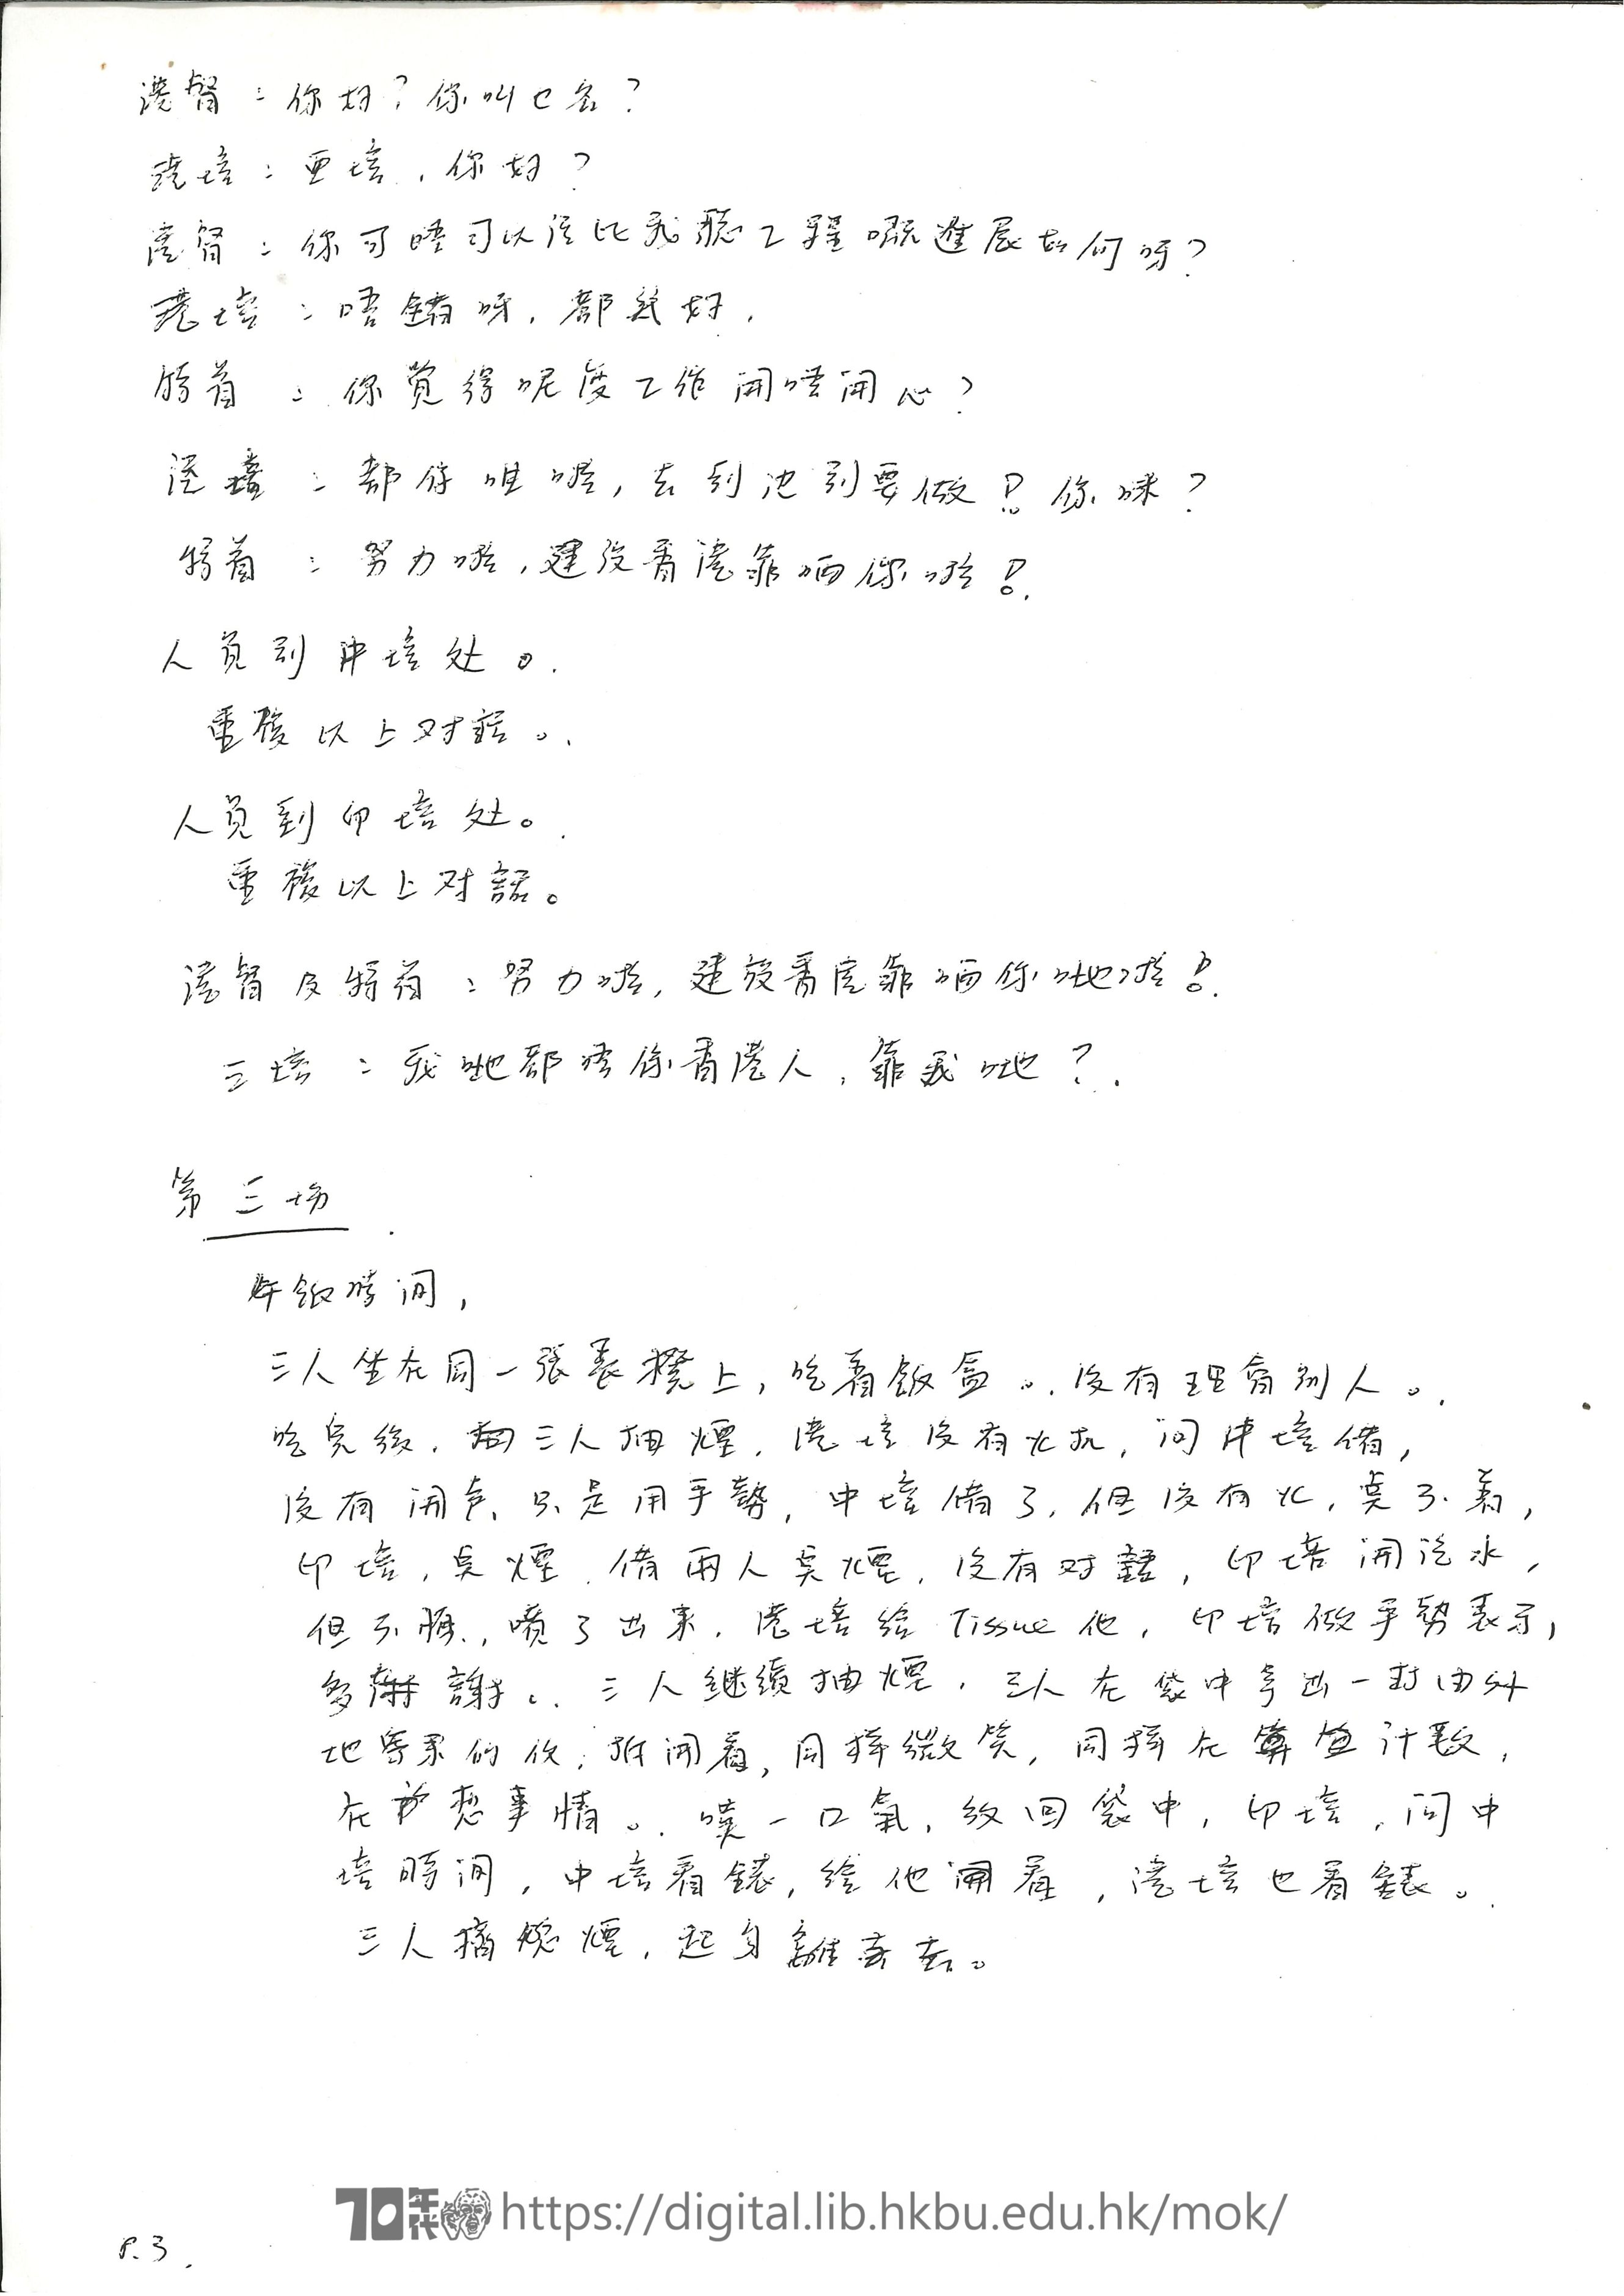 港督：你好？你叫乜名？
港培：亜培，你好？
港督：你可唔可以話比我聽工程嘅進展如何呀？
港培：唔錯呀，都幾好，
特首：你覚得呢度工作開唔開心？
港培：都係咁啦，去到边到要做！你咪？
特首：努力啦，建設香港靠晒你啦！
人員到中培处。
重複以上对話。
人員到印培处。
重複以上对話。
港督及特首：努力啦，建設香港靠晒你哋啦！
三培：我哋都唔係香港人，靠我哋？
第三場
午飯時間，
三人坐在同一張長櫈上，吃着飯盒。没有理會別人。
吃完後，三人抽煙，港培没有火机，问中培借，
没有開声，只是用手勢，中培借了，但没有火，点不着，
印培，点煙，借兩人点煙，没有对話，印培開汽水，
但不慎，噴了出来，港培给Tissue他，印培做手勢表示，
多謝。三人継續抽煙，三人在袋中拿出一封由外
地寄来的信，拆開看，同樣微笑，同樣在計數，
在想事情。嘆一口氣，放回袋中，印培，问中
培時间，中培看錶，给他看，港培也看錶。
三人熄煙，起身離去。
P.3
70年代 https://digital.lib.hkbu.edu.hk/mok/